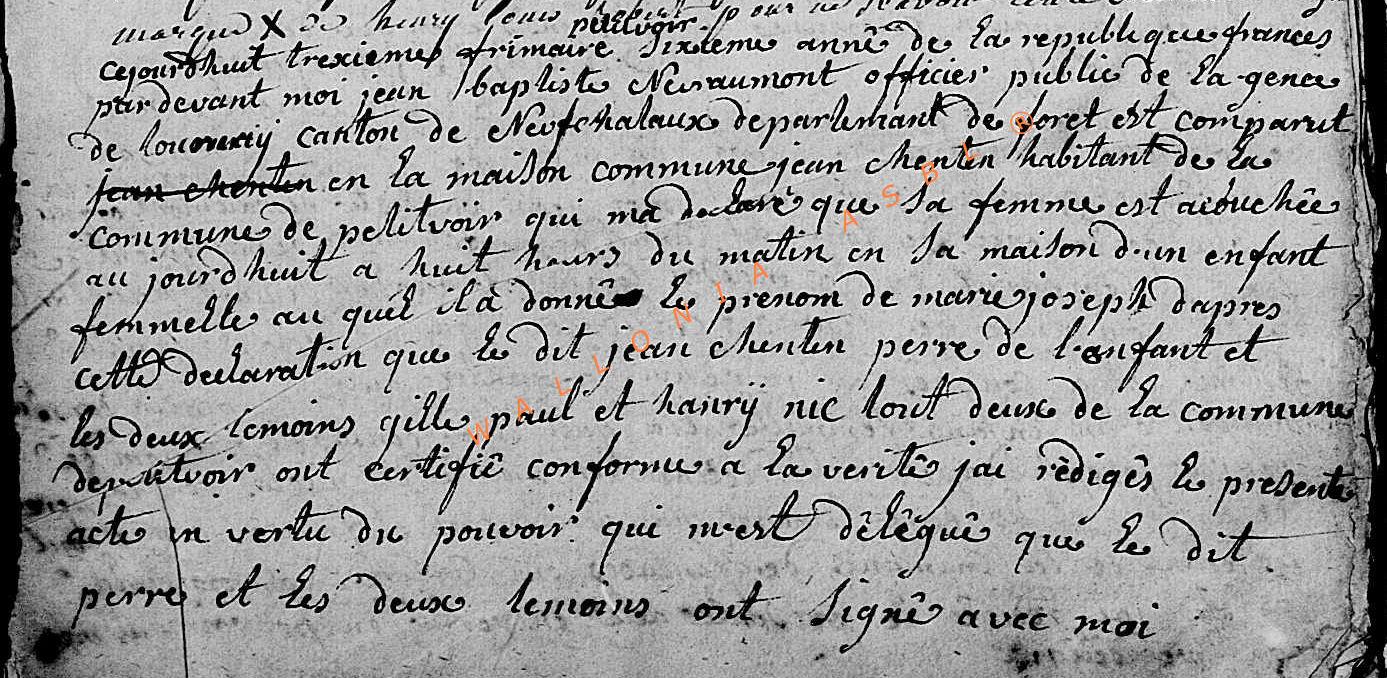 marque X de henry
petitvoir
cejourdhuit trexiemes frimaire sixieme annê de la republique frances
par devant moi jean baptiste Neraumont officier public de la gence
de canton de Neufchataux departemant de foret est comparut
jean chentin en la maison commune jean chentin habitant de la
commune de petitvoir qui ma declarê que sa femme est acouchêe
au jourdhuit a huit heurs du matin en sa maison d'un enfant
femmelle au quel il a donnê le prenom de marie joseph dapres
cette declaration que le dit jean chentin perre de l'enfant et
les deux temoins gille paul et hanrÿ nic tout deux de la commune
de petitvoir ont certifiê conforme a la veritê jai rêdigês le presente
acte en vertu du pouvoir qui m'est dêlêguê que le dit
perre et les deux temoins ont signê avec moi
WALLONIA ASBL ®